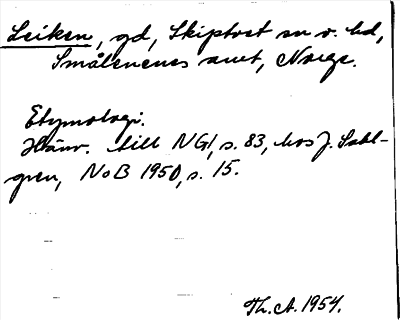 Leiken, gd, Skiptvet sn o. hd,
Smålenenes amt, Norge.
Etymologi.
Hänv. till NG1, s. 83, hos J. Sahl-
gren, NoB 1950, s. 15.
Th. A. 1954.